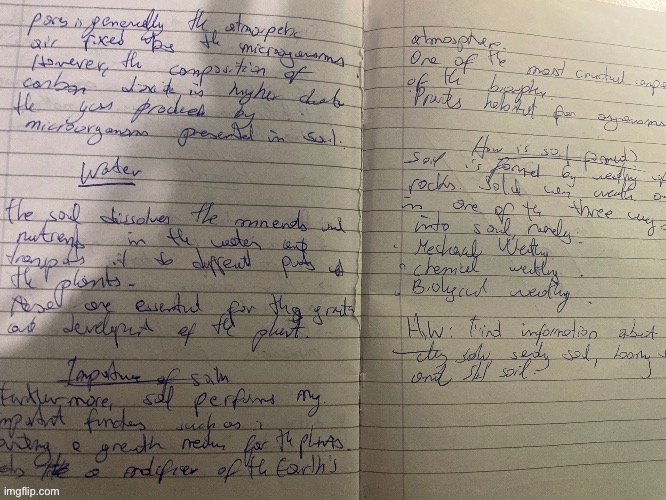 pores is generally the atmospheric
air fixed the microorganisms
However, the composition of
carbon dioxide is higher due to
the gas produced by
microorganisms presented in soil.
Water
the soil dissolves the minerals and
nutrients in the water and
transports it to different parts of
the plants.
are essential for the growth
and development of the plant.
Importance of soil
Furthermore, soil performs many
important functions such as :
a growth medium for the plants.
a modifier of the Earth's
atmosphere.
One of the most crucial
of the biosphere
habitat for organisms
How is soil formed?
Soil is formed by weathering of
rocks. Solid
in one of the three ways
into soil namely:
Mechanical Weathing
chemical weathing
Biological weathing.
H.W: Find information about
clay soil, sandy soil, loamy
and silt soil.
imgflip.com